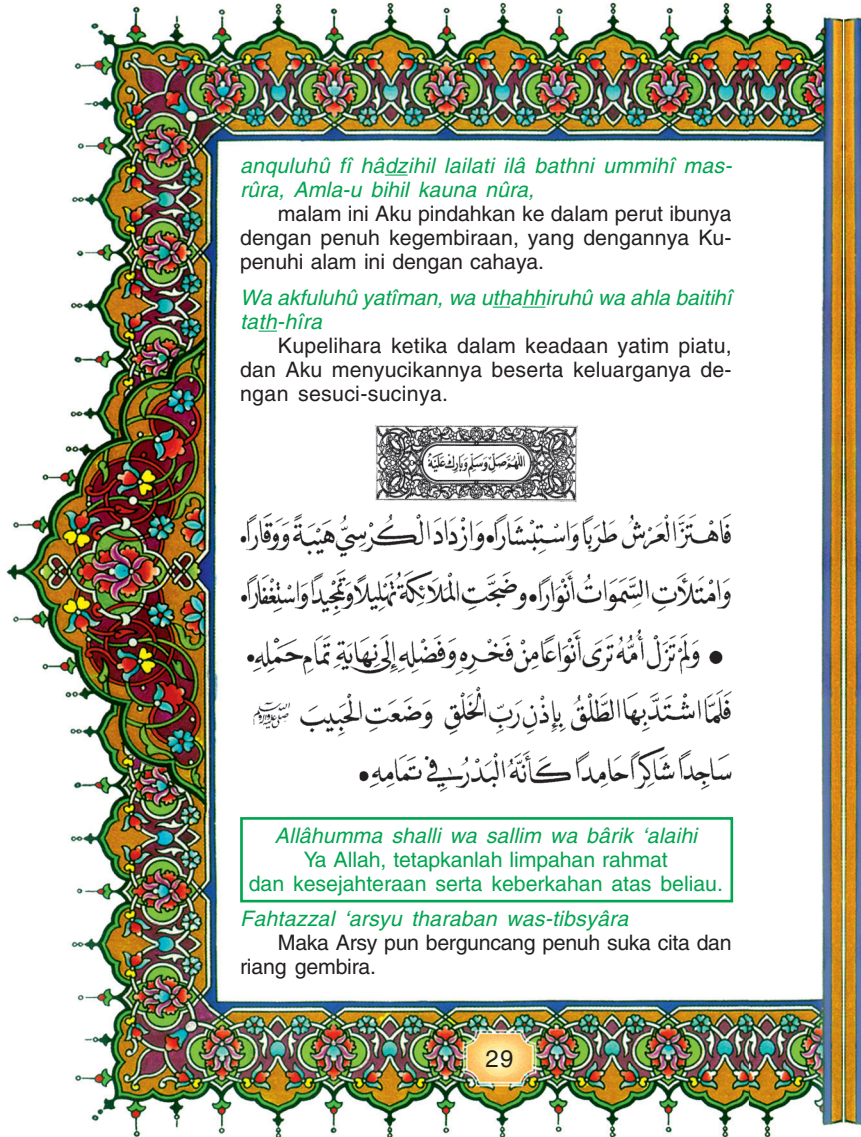 anquluhû fî hâdzihil lailati ilâ bathni ummihî mas-
rûra, Amla-u bihil kauna nûra,
malam ini Aku pindahkan ke dalam perut ibunya
dengan penuh kegembiraan, yang dengannya Ku-
penuhi alam ini dengan cahaya.
Wa akfuluhû yatîman, wa uthahhiruhû wa ahla baitihî
tath-hîra
Kupelihara ketika dalam keadaan yatim piatu,
dan Aku menyucikannya beserta keluarganya de-
ngan sesuci-sucinya.
اللهُمَّ صَلِّ وَسَلِّمْ وَبَارِكْ عَلَيْهِ
فَاهْتَزَّ الْعَرْشُ طَرَبًا وَاسْتِبْشَارًا. وَازْدَادَ الْكُرْسِيُّ هَيْبَةً وَوَقَارًا.
وَامْتَلَأَتِ السَّمَوَاتُ أَنْوَارًا. وضَجَّتِ الْمَلَائِكَةُ تَهْلِيلًا وَتَمْجِيدًا وَاسْتِغْفَارًا.
• وَلَمْ تَزَلْ أُمُّهُ تَرَى أَنْوَاعًا مِنْ فَخْرِهِ وَفَضْلِهِ إِلَى نِهَايَةِ تَمَامِ حَمْلِهِ.
فَلَمَّا اشْتَدَّ بِهَا الطَّلْقُ بِإِذْنِ رَبِّ الْخَلْقِ وَضَعَتِ الْحَبِيبَ ﷺ
سَاجِدًا شَاكِرًا حَامِدًا كَأَنَّهُ الْبَدْرُ فِي تَمَامِهِ •
Allâhumma shalli wa sallim wa bârik ‘alaihi
Ya Allah, tetapkanlah limpahan rahmat
dan kesejahteraan serta keberkahan atas beliau.
Fahtazzal ‘arsyu tharaban was-tibsyâra
Maka Arsy pun berguncang penuh suka cita dan
riang gembira.
29